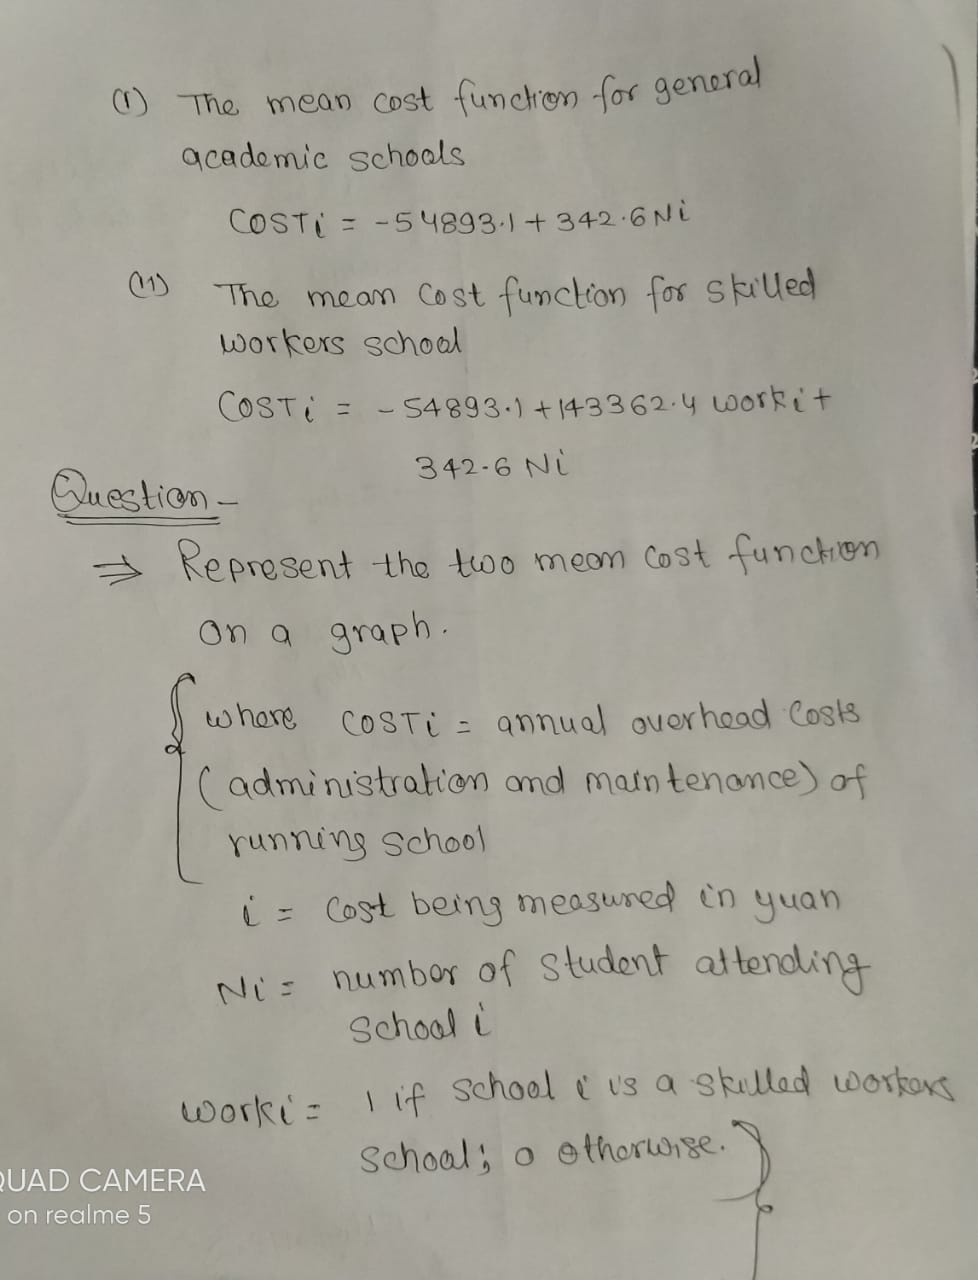 (1) The mean cost function for general
academic schools
COSTi = -54893.1 + 342.6Ni
(11) The mean Cost function for skilled
workers school
COSTi = - 54893.1 + 143362.4 worki +
342.6 Ni
Question -
⇒ Represent the two mean Cost function
on a graph.
{ where COSTi = annual overhead Costs
(administration and maintenance) of
running school
i = Cost being measured in yuan
Ni = number of student attending
School i
worki = 1 if school i is a skilled workers
school; 0 otherwise. }
QUAD CAMERA
on realme 5